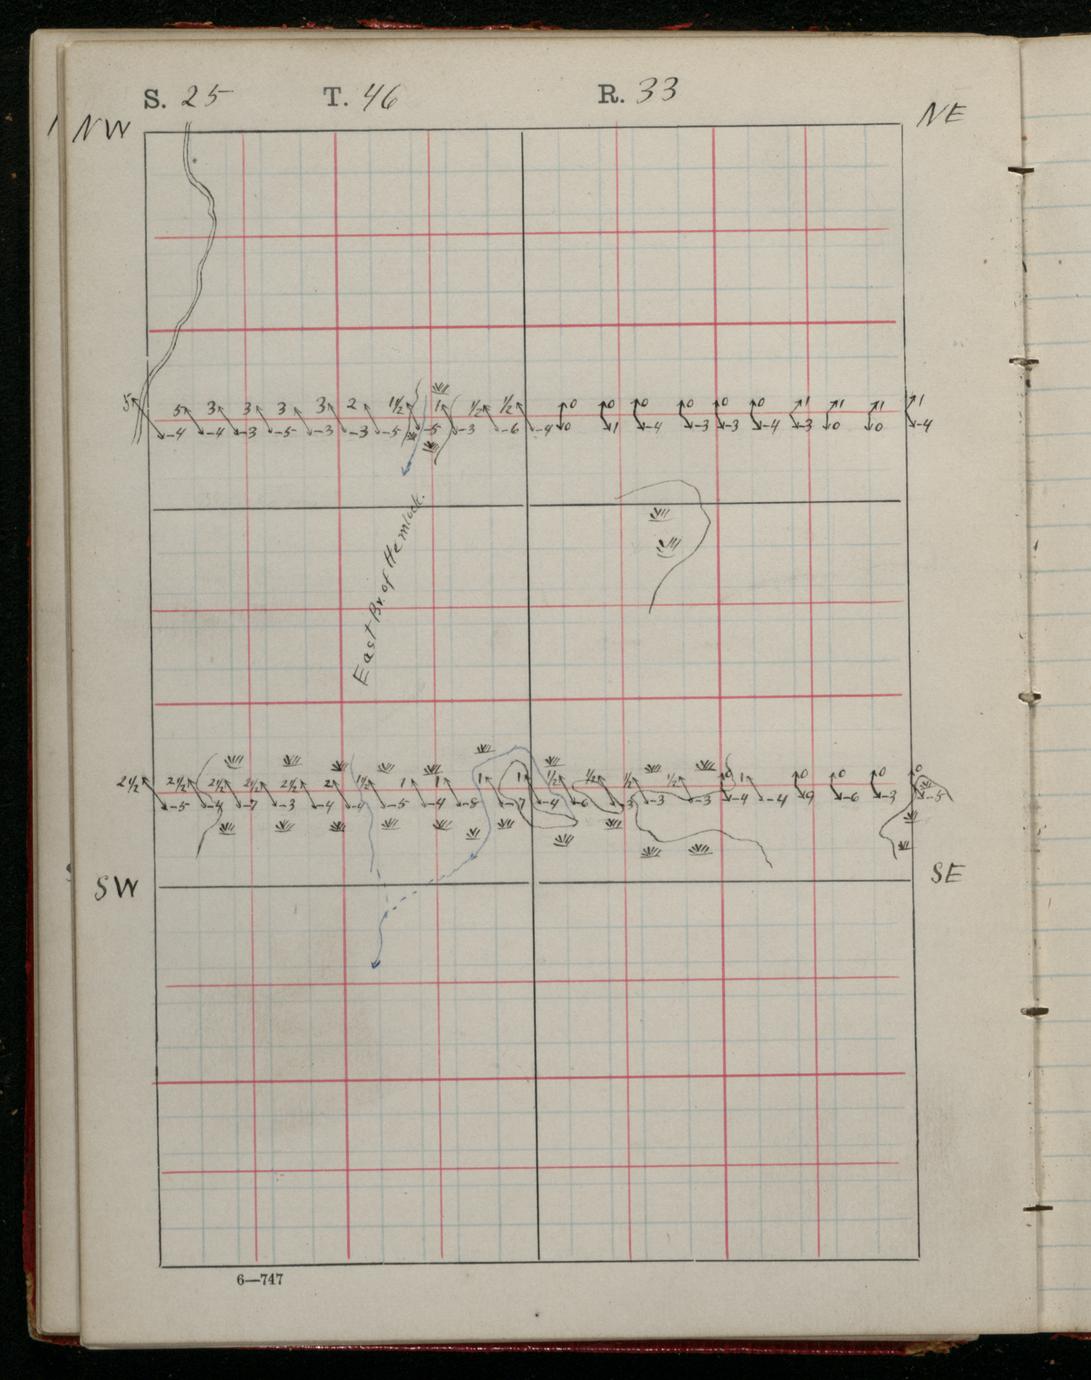 S. 25 T. 46 R. 33
NW NE
5 5 3 3 3 3 2 1½ 1 ½ ½ 0 0 0 0 0 0 1 1 1 1
-4 -4 -3 -5 -3 -3 -5 -5 -3 -6 -4 0 1 -4 -3 -3 -4 -3 0 0 -4
East Br. of Hemlock.
2½ 2½ 2½ 2½ 2½ 2 1½ 1 1 1 1 ½ ½ ½ ½ 0 1 0 0 0 0
-5 -4 -7 -3 -4 -4 -5 -4 -8 -7 -4 -6 -3 -3 -3 -4 -4 9 -6 -3 -5
SW SE
6—747